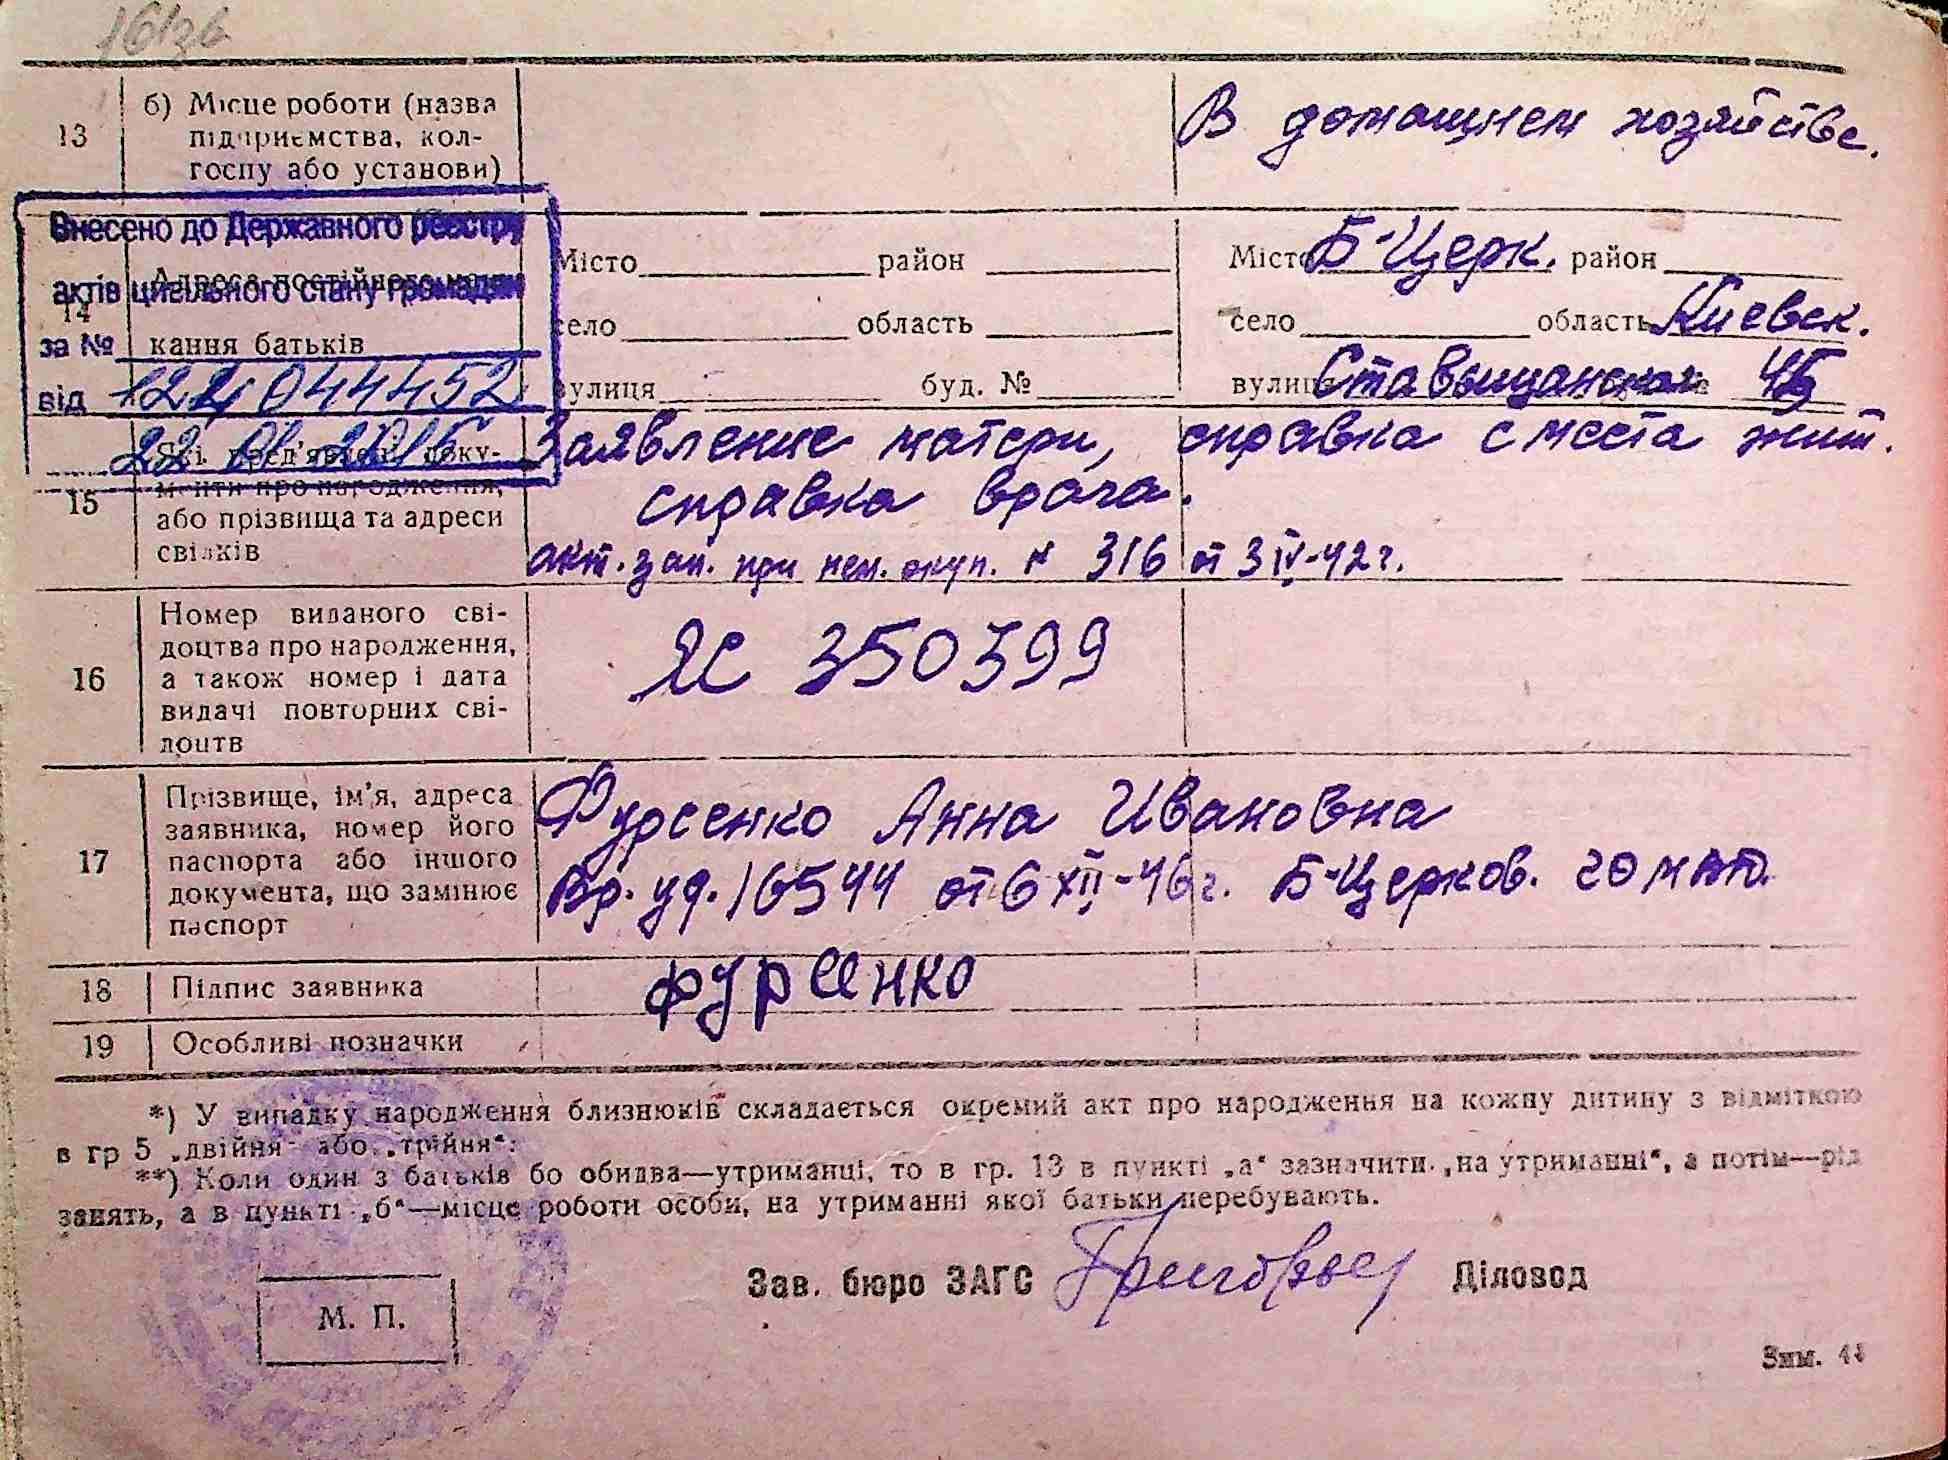 13
б) Місце роботи (назва
підприємства, кол-
госпу або установи)
В домашнем хозяйстве.
Внесено до Державного реєстру
актів цивільного стану громадян
за №
від 122 044452
22 01 2015
14
Адреса постійного
кання батьків
Місто район
село область
вулиця буд. №
Місто Б-Церк. район
село область Киевск.
вулиця Ставищанская 45
15
Які пред'явлені доку-
менти про народження,
або прізвища та адреси
свідків
Заявление матери, справка с места жит.
справка врача.
акт. зап. при нем. окуп. № 316 от 3 IV-42 г.
16
Номер виданого сві-
доцтва про народження,
а також номер і дата
видачі повторних сві-
доцтв
ЯС 350399
17
Прізвище, ім'я, адреса
заявника, номер його
паспорта або іншого
документа, що замінює
паспорт
Фурсенко Анна Ивановна
Вр. уд. 16544 от 6 XII-46 г. Б-Церков.
18 Підпис заявника Фурсенко
19 Особливі позначки
*) У випадку народження близнюків складається окремий акт про народження на кожну дитину з відміткою
в гр 5 „двійня" або „трійня".
**) Коли один з батьків бо обидва—утриманці, то в гр. 13 в пункті „а" зазначити „на утриманні", а потім—рід
занять, а в пункті „б"—місце роботи особи, на утриманні якої батьки перебувають.
Зав. бюро ЗАГС Діловод
М. П.